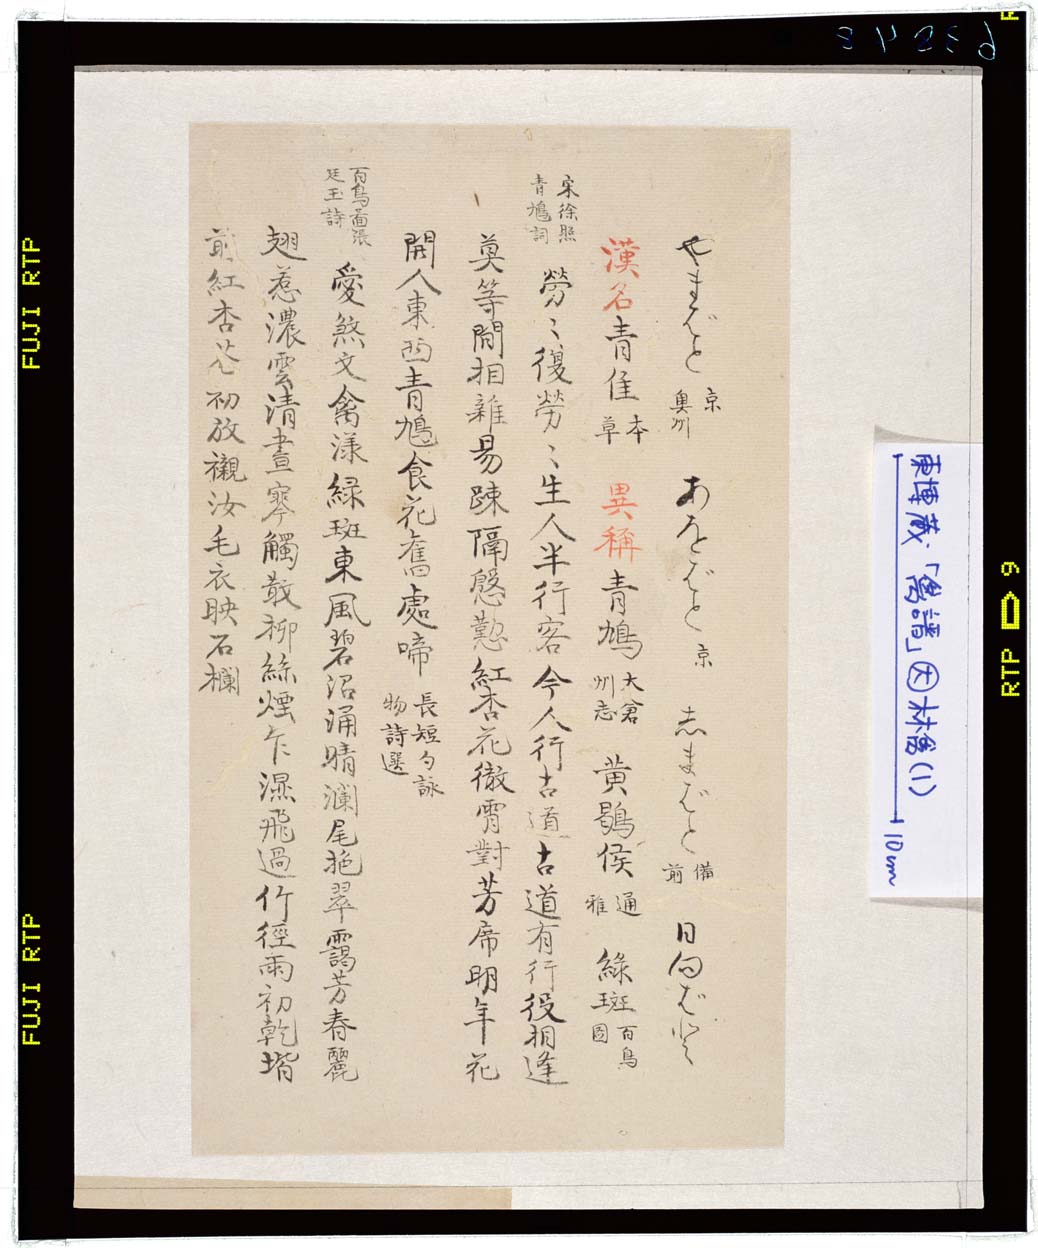 やまばと 京奥州 あをばと 京 志まばと 備前 日向ばと
漢名青隹 本草 異稱青鳩 大倉州志 黄侯 通雅 綠斑 百鳥圖
宋徐照青鳩詞 勞〻復勞〻生人半行客今人行古道古道有行役相逢
莫等閒相離易踈隔慇懃紅杏花徹霄對芳席明年花
開人東西青鳩食花舊處啼 長短句詠物詩選
百鳥畫張廷玉詩 愛煞文禽漾綠斑東風碧沼涌晴瀾尾拖翠靄芳春麗
翅惹濃雲清晝寒觸散柳絲煙乍濕飛過竹徑雨初乾堦
前紅杏花初放襯汝毛衣映石欄
東博蔵「鳥譜」 林禽(1)
10cm
FUJI RTP
FUJI RTP
RTP 9